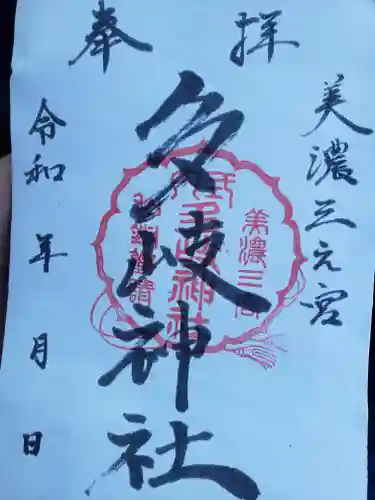 奉拝
美濃三元宮
多岐神社
美濃三宮
多岐神社
令和 年 月 日